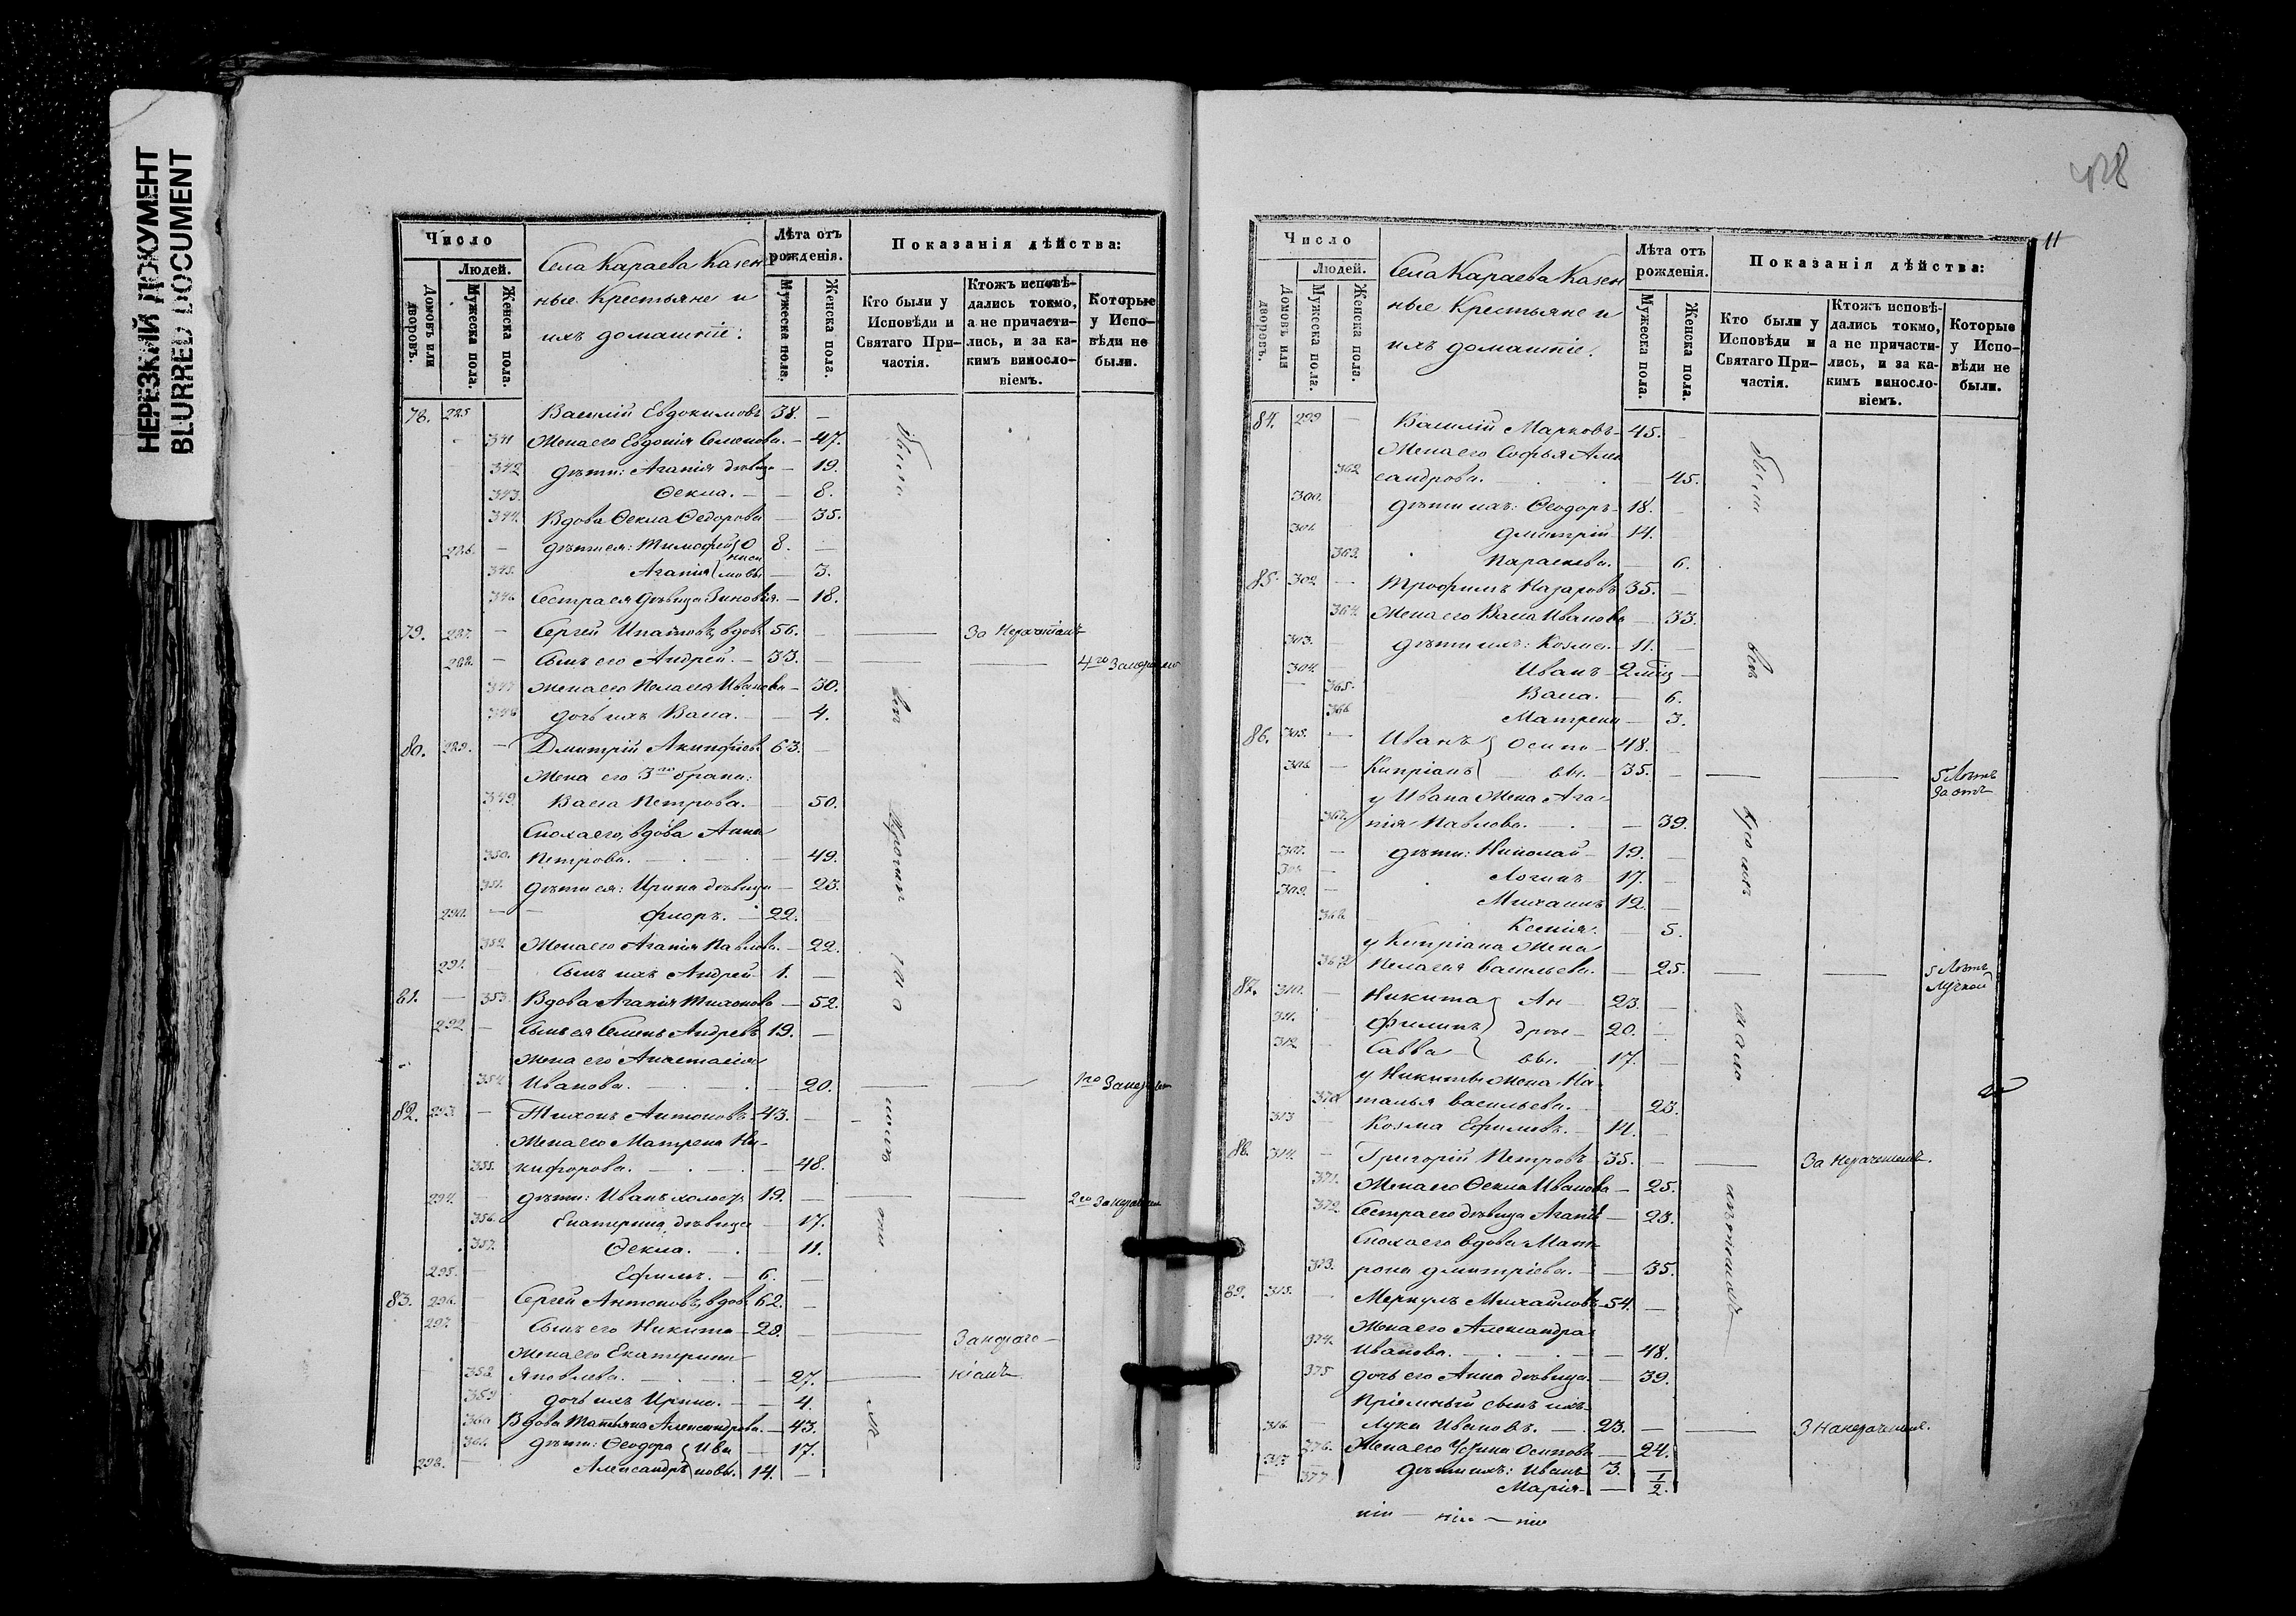 НЕРЕЗКИЙ ДОКУМЕНТ
BLURRED DOCUMENT
Число
Людей.
Домовъ или дворовъ.
Мужеска пола.
Женска пола.
Села Караева Казен
ные Крестьяне и
ихъ домашніе:
Лѣта отъ рожденія.
Мужеска пола.
Женска пола.
Показанія дѣйства:
Кто были у Исповѣди и Святаго Причастія.
Ктожъ исповѣдались токмо, а не причастились, и за какимъ винословіемъ.
Которые у Исповѣди не были.
78. 285 Василій Евдокимовъ 38. —
341 Жена его Евдокія Семенова. — 47.
342 дѣти: Агапія дѣвица — 19.
343. Ѳекла. — — 8.
344. Вдова Ѳекла Ѳедорова — 35.
286. — дѣти ея: Тимофей 8. —
345. Агапія — 3.
346 Сестра ея дѣвица Зиновія. — 18.
79. 287. — Сергей Ипатовъ, вдовъ 56. —
288. — Сынъ его Андрей. — 33. —
347 Жена его Пелагея Иванова — 30.
348 дочь ихъ Васса. — 4.
80. 289. — Дмитрій Акинфіевъ 63. —
Жена его 3го брака:
349. Васса Петрова. — 50.
Сноха его, вдова Анна
350. Петрова. — 49.
351. дѣти ея: Ирина дѣвица — 23.
290. — Флоръ. — 22.
352. Жена его Агапія Павлова. — 22.
291. Сынъ ихъ Андрей 1. —
81. — 353. Вдова Агапія Тихонова — 52.
292 — Сынъ ея Семенъ Андреевъ 19. —
Жена его Анастасія
354. Иванова. — 20.
82. 293. — Тихонъ Антоновъ 43. —
Жена его Матрена Ни-
355. кифорова. — 48.
294. дѣти: Иванъ холостъ 19. —
356. Екатерина дѣвица — 17.
357. Ѳекла. — 11.
295. — Ефимъ. — 6. —
83. 296. — Сергей Антоновъ, вдовъ 62. —
297. Сынъ его Никита — 28. —
Жена его Екатерина
358. Яковлева. — 27.
359 дочь ихъ Ирина. — 4.
360 Вдова Татьяна Александрова. — 43.
361. дѣти: Ѳеодора — 17.
298. Александръ 14. —
428
11
Число
Людей.
Домовъ или дворовъ.
Мужеска пола.
Женска пола.
Села Караева Казен
ные Крестьяне и
ихъ домашніе.
Лѣта отъ рожденія.
Мужеска пола.
Женска пола.
Показанія дѣйства:
Кто были у Исповѣди и Святаго Причастія.
Ктожъ исповѣдались токмо, а не причастились, и за какимъ винословіемъ.
Которые у Исповѣди не были.
84. 299 — Василій Марковъ 45. —
Жена его Софья Алек
362 сандрова. — 45.
300. дѣти ихъ: Ѳеодоръ 18. —
301. Дмитрій 14.
363. Параскева. — 6.
85. 302 — Трофимъ Назаровъ 35. —
364. Жена его Васса Иванова — 33.
303. дѣти ихъ: Козма — 11. —
304. Иванъ —
365. Васса. — 6.
366 Матрена — 3.
86. 305. — Иванъ Осипо — 48. —
306. — Кипріанъ вы. — 35. — 5 Лѣтъ
у Ивана Жена Ага-
367. пія Павлова. — 39.
307. — дѣти: Николай 19. —
308. Логинъ 17. —
309. — Михаилъ 12. —
368. Ксенія. — 5.
у Кипріана Жена
Пелагея Васильева. — 25. 5 Лѣтъ
87. 310. — Никита Ан — 23. —
311. — Филипъ дрее — 20. —
312. — Савва вы. — 17. —
у Никиты Жена На-
370 талья Васильева. — 23.
313 Козма Ефимовъ. — 14. —
88. 314. — Григорій Петровъ 35. —
371. Жена его Ѳекла Иванова — 25.
372. Сестра его дѣвица Агапія — 23.
Сноха его вдова Мат-
373. рона Дмитріева. — 35.
89. 315. — Меркулъ Михайловъ 54. —
Жена его Александра
374. Иванова. — 48.
375 дочь его Анна дѣвица. — 39.
Пріемный сынъ ихъ
316. Лука Ивановъ. — 23. —
376. Жена его Устина Осипова — 24.
317. дѣти ихъ: Иванъ 3.
377 Марія — 1/2.